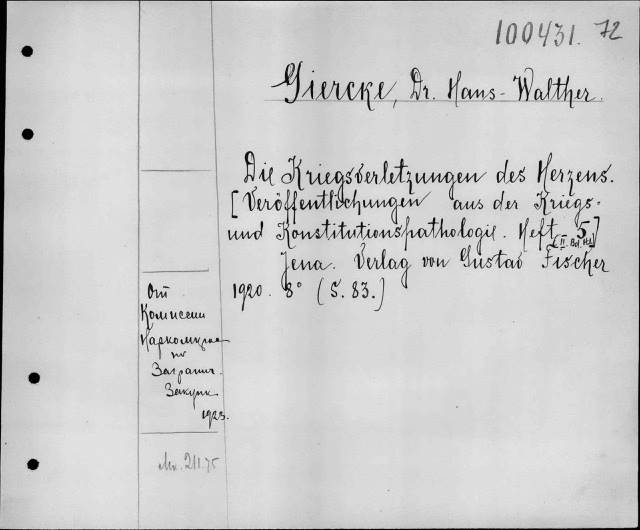 100431. 72
Giercke, Dr. Hans-Walther.
Die Kriegsverletzungen des Herzens.
[Veröffentlichungen aus der Kriegs-
und Konstitutionspathologie. Heft 5]
[II. Bd. H.1]
Jena. Verlag von Gustav Fischer
1920. 8° (S. 83.)
От
Комиссии
по
Загранич.
Закупк.
1923.
211.75